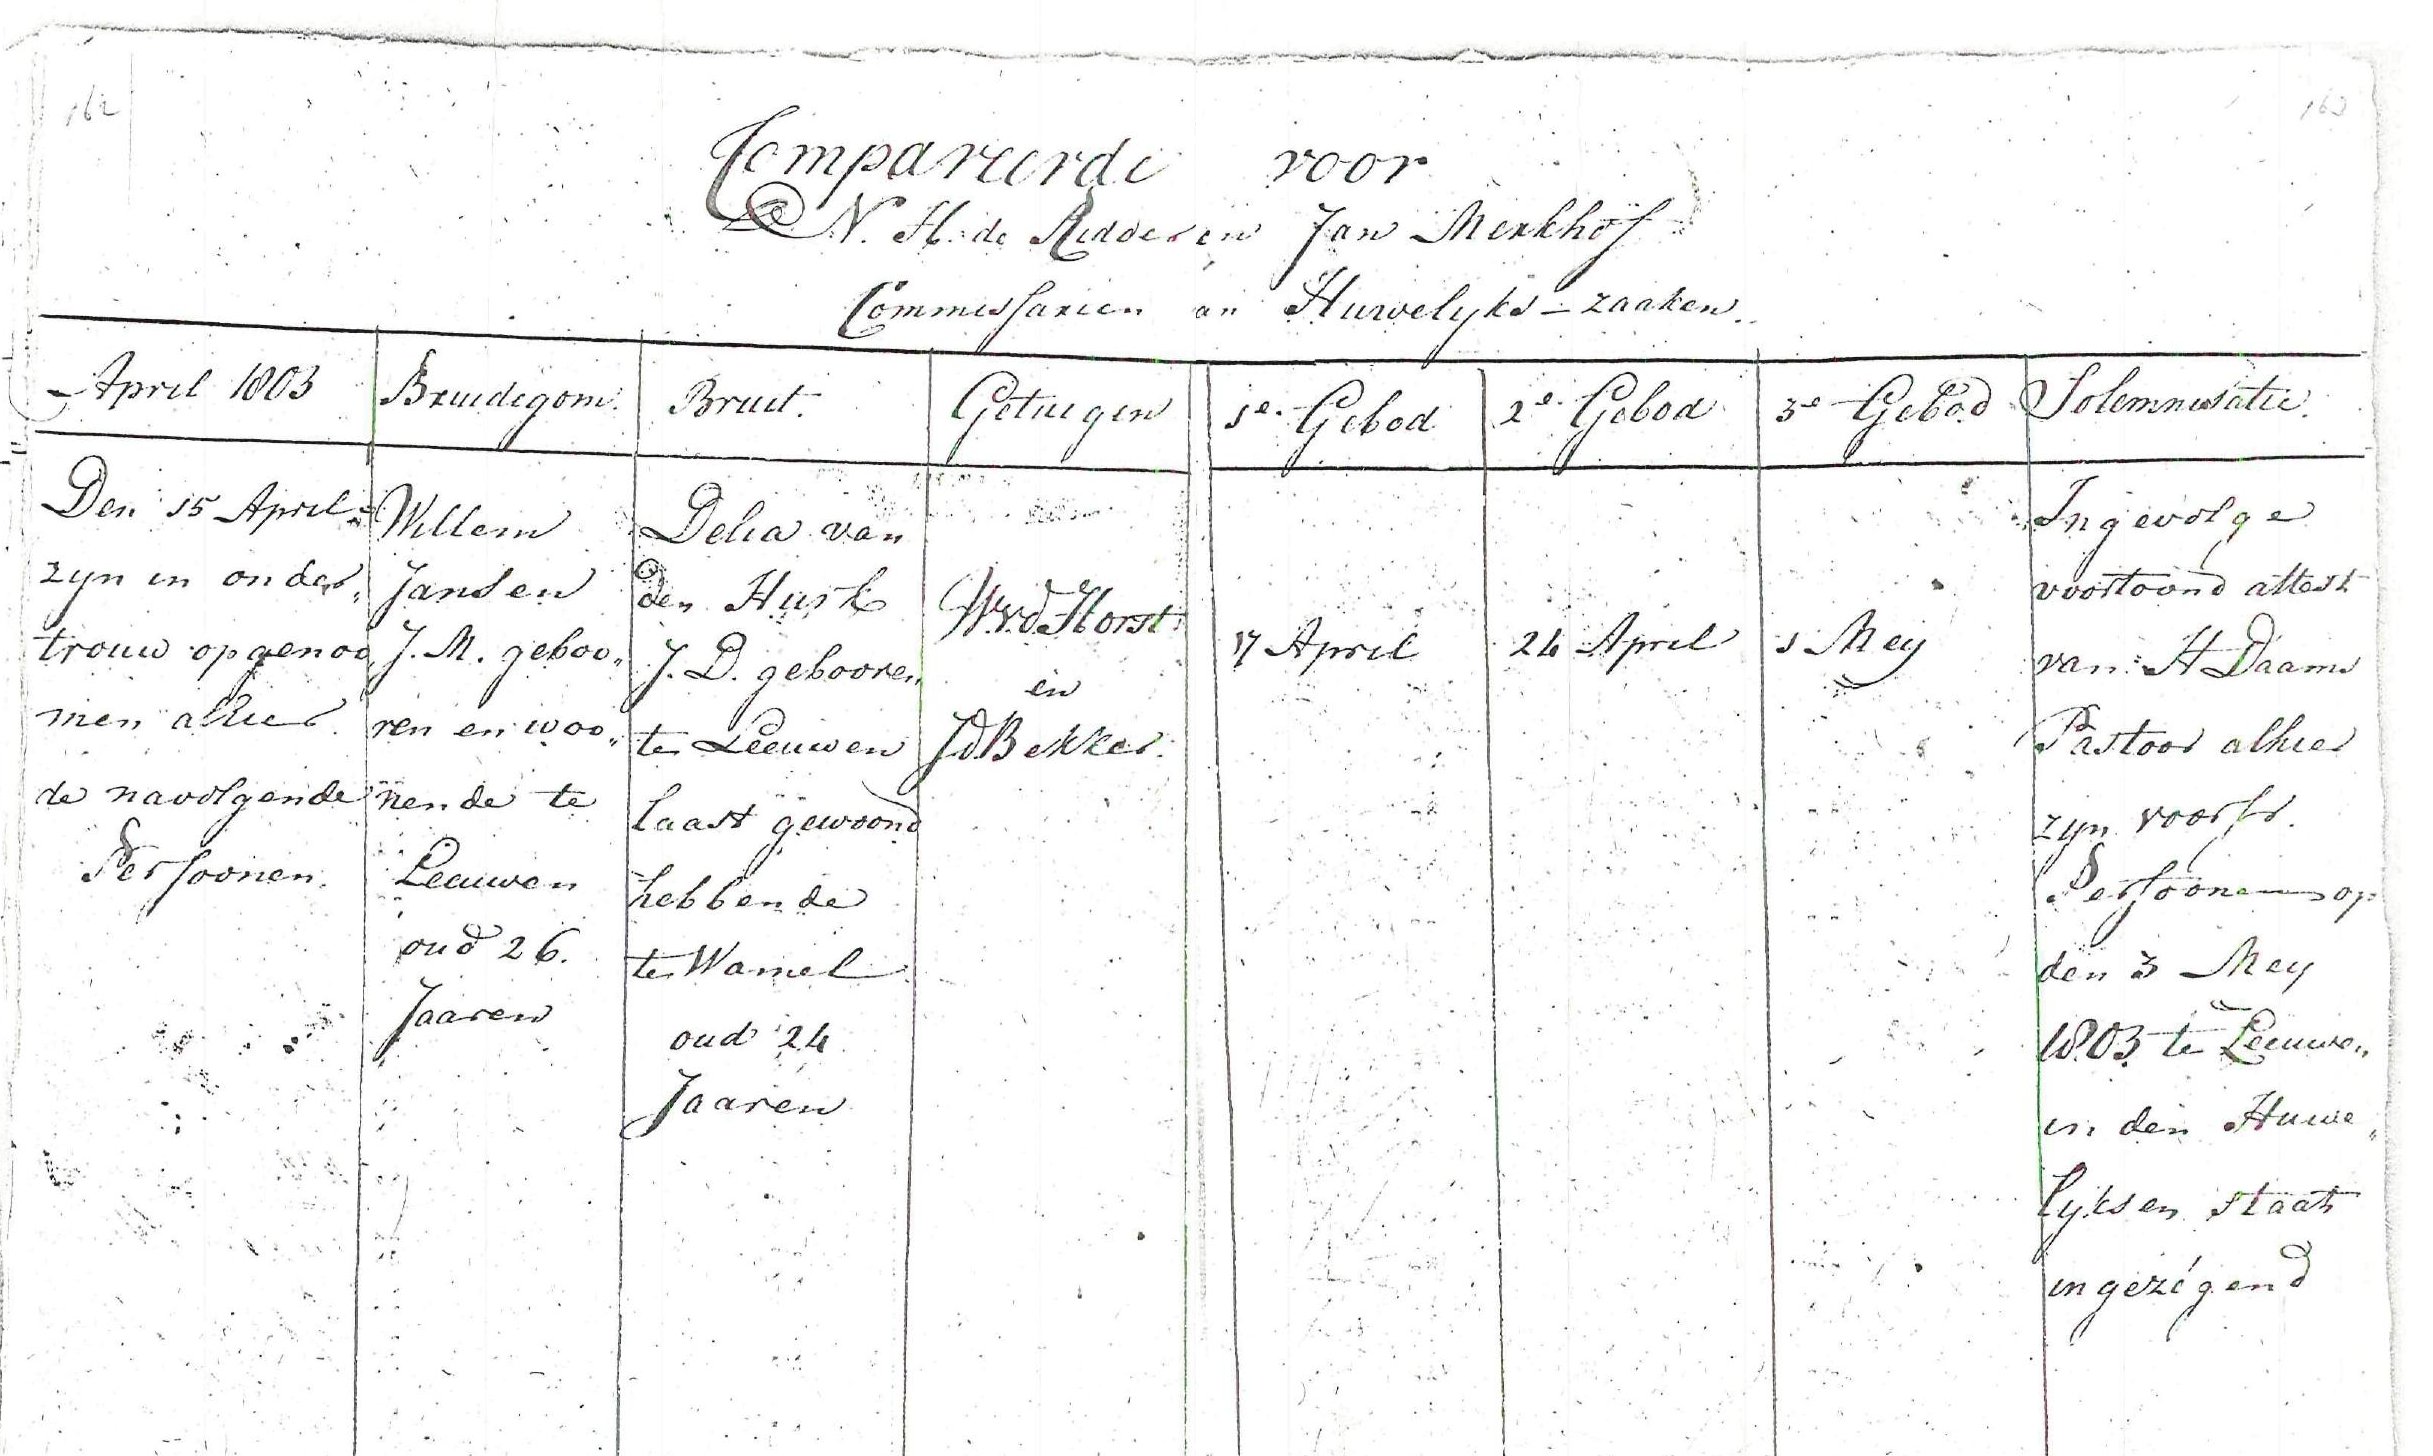 162
163
Compareerde voor
N. H. de Ridder en Jan Merkhof
Commissarien in Huwelyks-zaaken.
April 1803
Bruidegom.
Bruit.
Getuigen
1e. Gebod
2e. Gebod
3e Gebod
Solemnisatie.
Den 15 April
zyn in onder„
trouw opgenoo„
men alhier.
de navolgende
Persoonen.
Willem
Jansen
J. M. geboo„
ren en woo„
nende te
Leeuwen
oud 26.
Jaaren
Delia van
den Hurk
J. D. geboore„
te Leeuwen
laast gewoond
hebbende
te Wamel
oud 24
Jaaren
W.v.d. Horst
en
J d. Bekker.
17 April
24 April
1 Mey
Ingevolge
voortoond attest
van H Daams
Pastoor alhier
zyn voorsr.
Persoonen op
den 3 Mey
1803 te Leeuwe„
in den Huwe„
lyksen staat
ingezégend